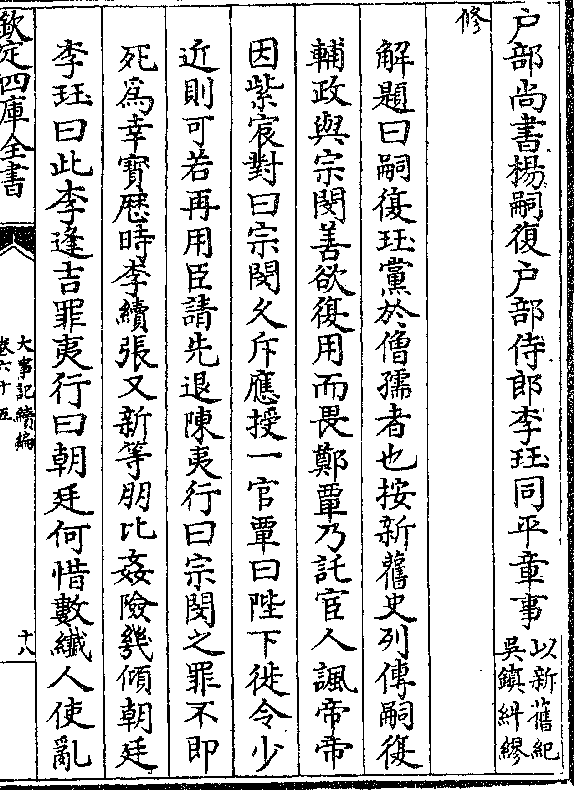 户部尚書楊嗣復户部侍郎李珏同平章事以新舊紀
吳鎮糾繆
修
解題曰嗣復珏黨於僧孺者也按新舊史列傳嗣復
輔政與宗閔善欲復用而畏鄭覃乃託宦人諷帝帝
因紫宸對曰宗閔久斥應授一官覃曰陛下徙令少
近則可若再用臣請先退陳夷行曰宗閔之罪不即
死為幸寳歴時李續張又新等朋比姦險㡬傾朝廷
李珏曰此李逢吉罪夷行曰朝廷何惜數纖人使亂
欽定四庫全書
大事記續編
卷六十五
十八